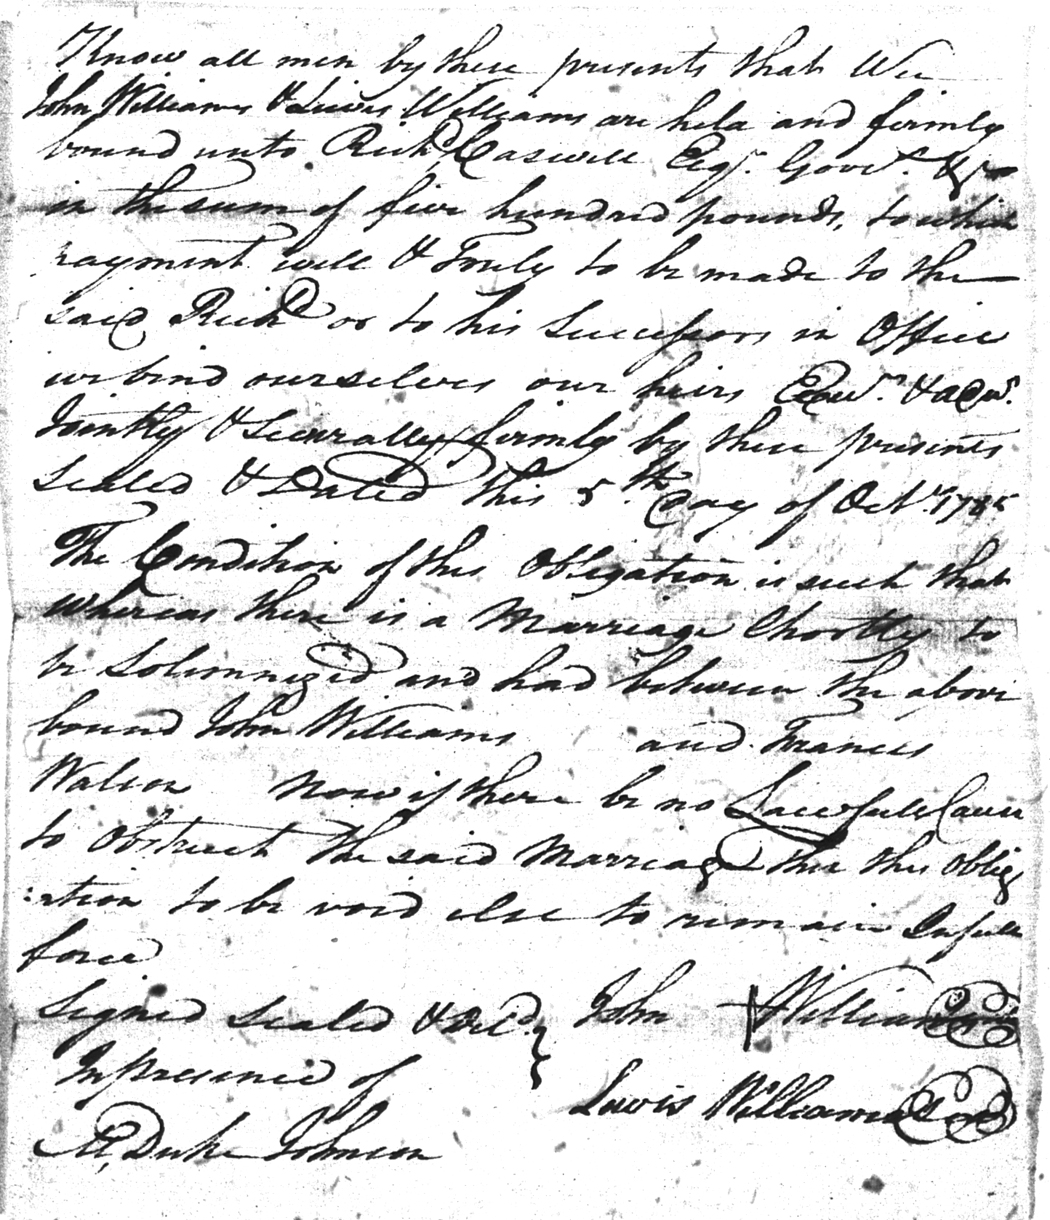 Know all men by these presents that We
John Williams & Lewis Williams are held and firmly
bound unto Richd Caswell Esqr. Govr. &c
in the sum of five hundred pounds, to which
payment well & Truly to be made to the
said Richd or to his Successors in Office
we bind ourselves our heirs Exrs. & adms.
Jointly & Severally firmly by these presents
Sealed & Dated this 5th day of Octr. 1785
The Condition of this Obligation is such that
Whereas there is a Marriage Shortly to
be Solemnized and had between the above
bound John Williams and Frances
Walson Now if there be no Lawfull Cause
to Obstruct the said Marriage then this oblig
:ation to be void else to remain Infull
force
Signed Sealed & Deld. John + Williams
Inpresence of
Lewis Williams
Duke Johnson